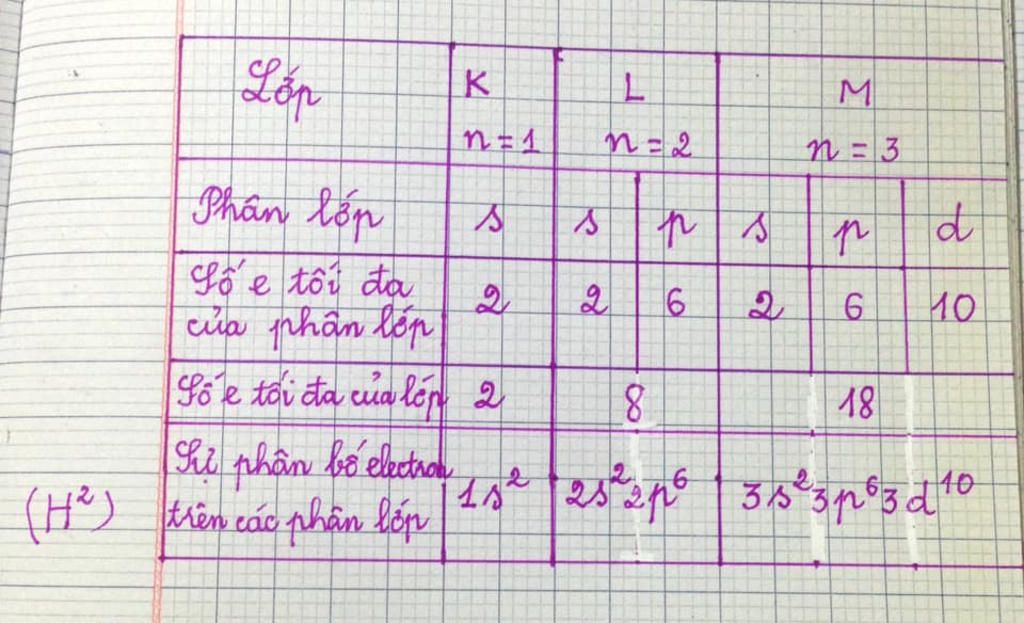 Lớp K L M
n = 1 n = 2 n = 3
Phân lớp s s p s p d
Số e tối đa
của phân lớp 2 2 6 2 6 10
Số e tối đa của lớp 2 8 18
Sự phân bố electron
trên các phân lớp 1s² 2s²2p⁶ 3s²3p⁶3d¹⁰
(H²)